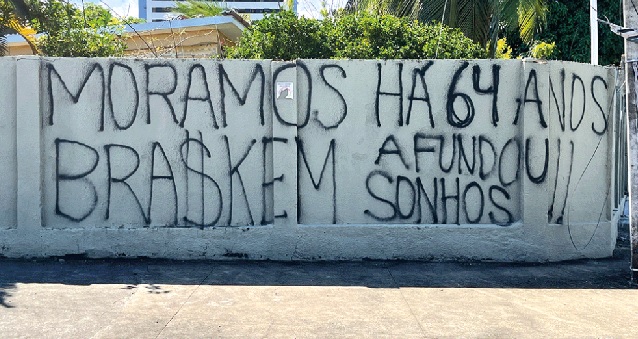 MORAMOS HÁ 64 ANOS
BRA$KEM AFUNDOU
SONHOS!!